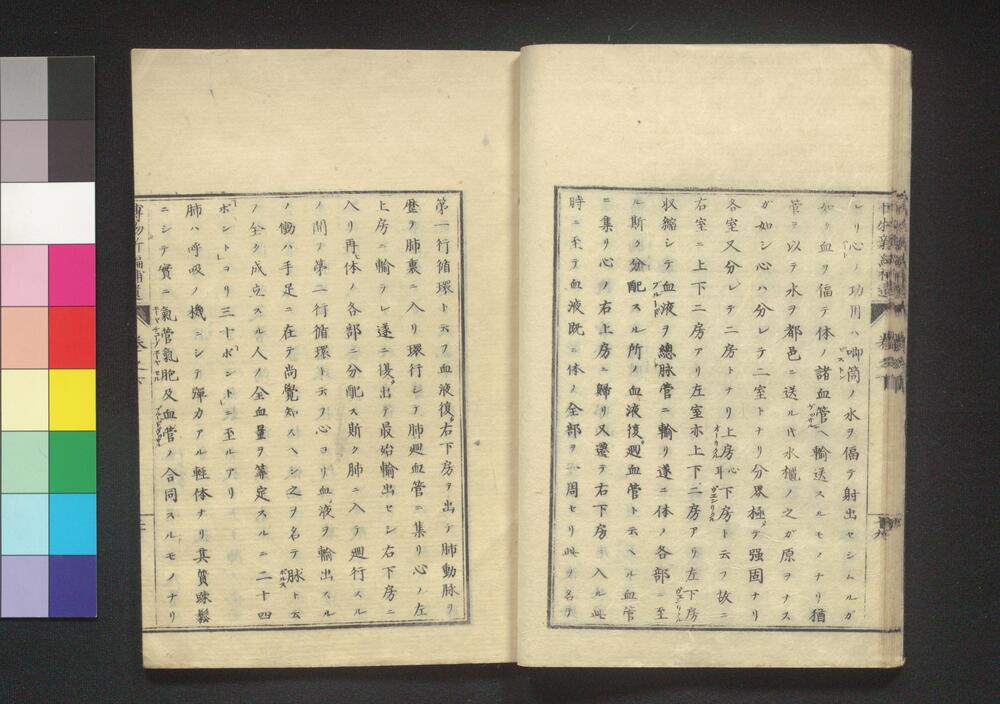 レリ心ノ功用ハ喞筒ノ水ヲ偪テ射出セシムルガ
如ク血ヲ偪テ体ノ諸血管ヘ輸送スルモノナリ猶
管ヲ以テ水ヲ都邑ニ送ル代水櫃ノ之ガ原ヲナス
ガ如シ心ハ分レテ二室トナリ分界極メテ强固ナリ
各室又分レテ二房トナリ上房心耳下房ト云フ故ニ
右室ニ上下二房アリ左室亦上下二房アリ左下房
収縮シテ血液ヲ總脉管ニ輸リ遂ニ体ノ各部ニ至
ル斯ク分配スル所ノ血液復廻血管ト云ヘル血管
ニ集リ心ノ右上房ニ歸リ又遷テ右下房ヘ入ル此
時ニ至テ血液既ニ体ノ全部ヲ一周セリ此ヲ名テ
第一行循環ト云フ血液復右下房ヲ出テ肺動脉ヲ
歴テ肺裏ニ入リ環行シテ肺廻血管ニ集リ心ノ左
上房ニ輸テレ遂ニ復出テ最始輸出セシ右下房ニ
入リ再体ノ各部ニ分配ス斯ク肺ニ入テ廻行スル
ノ間ヲ第二行循環ト云フ心ヨリ血液ヲ輸出スル
ノ働ハ手足ニ在テ尚覺知スヘシ之ヲ名テ脉ト云
ノ全ク成立スル人ノ全血量ヲ筭定スルニ二十四
ポントヨリ三十ポントニ至ルアリ
肺ハ呼吸ノ機ニシテ彈力アル軽体ナリ其質踈鬆
ニシテ實ニ氣管氣胞及血管ノ合同スルモノナリ